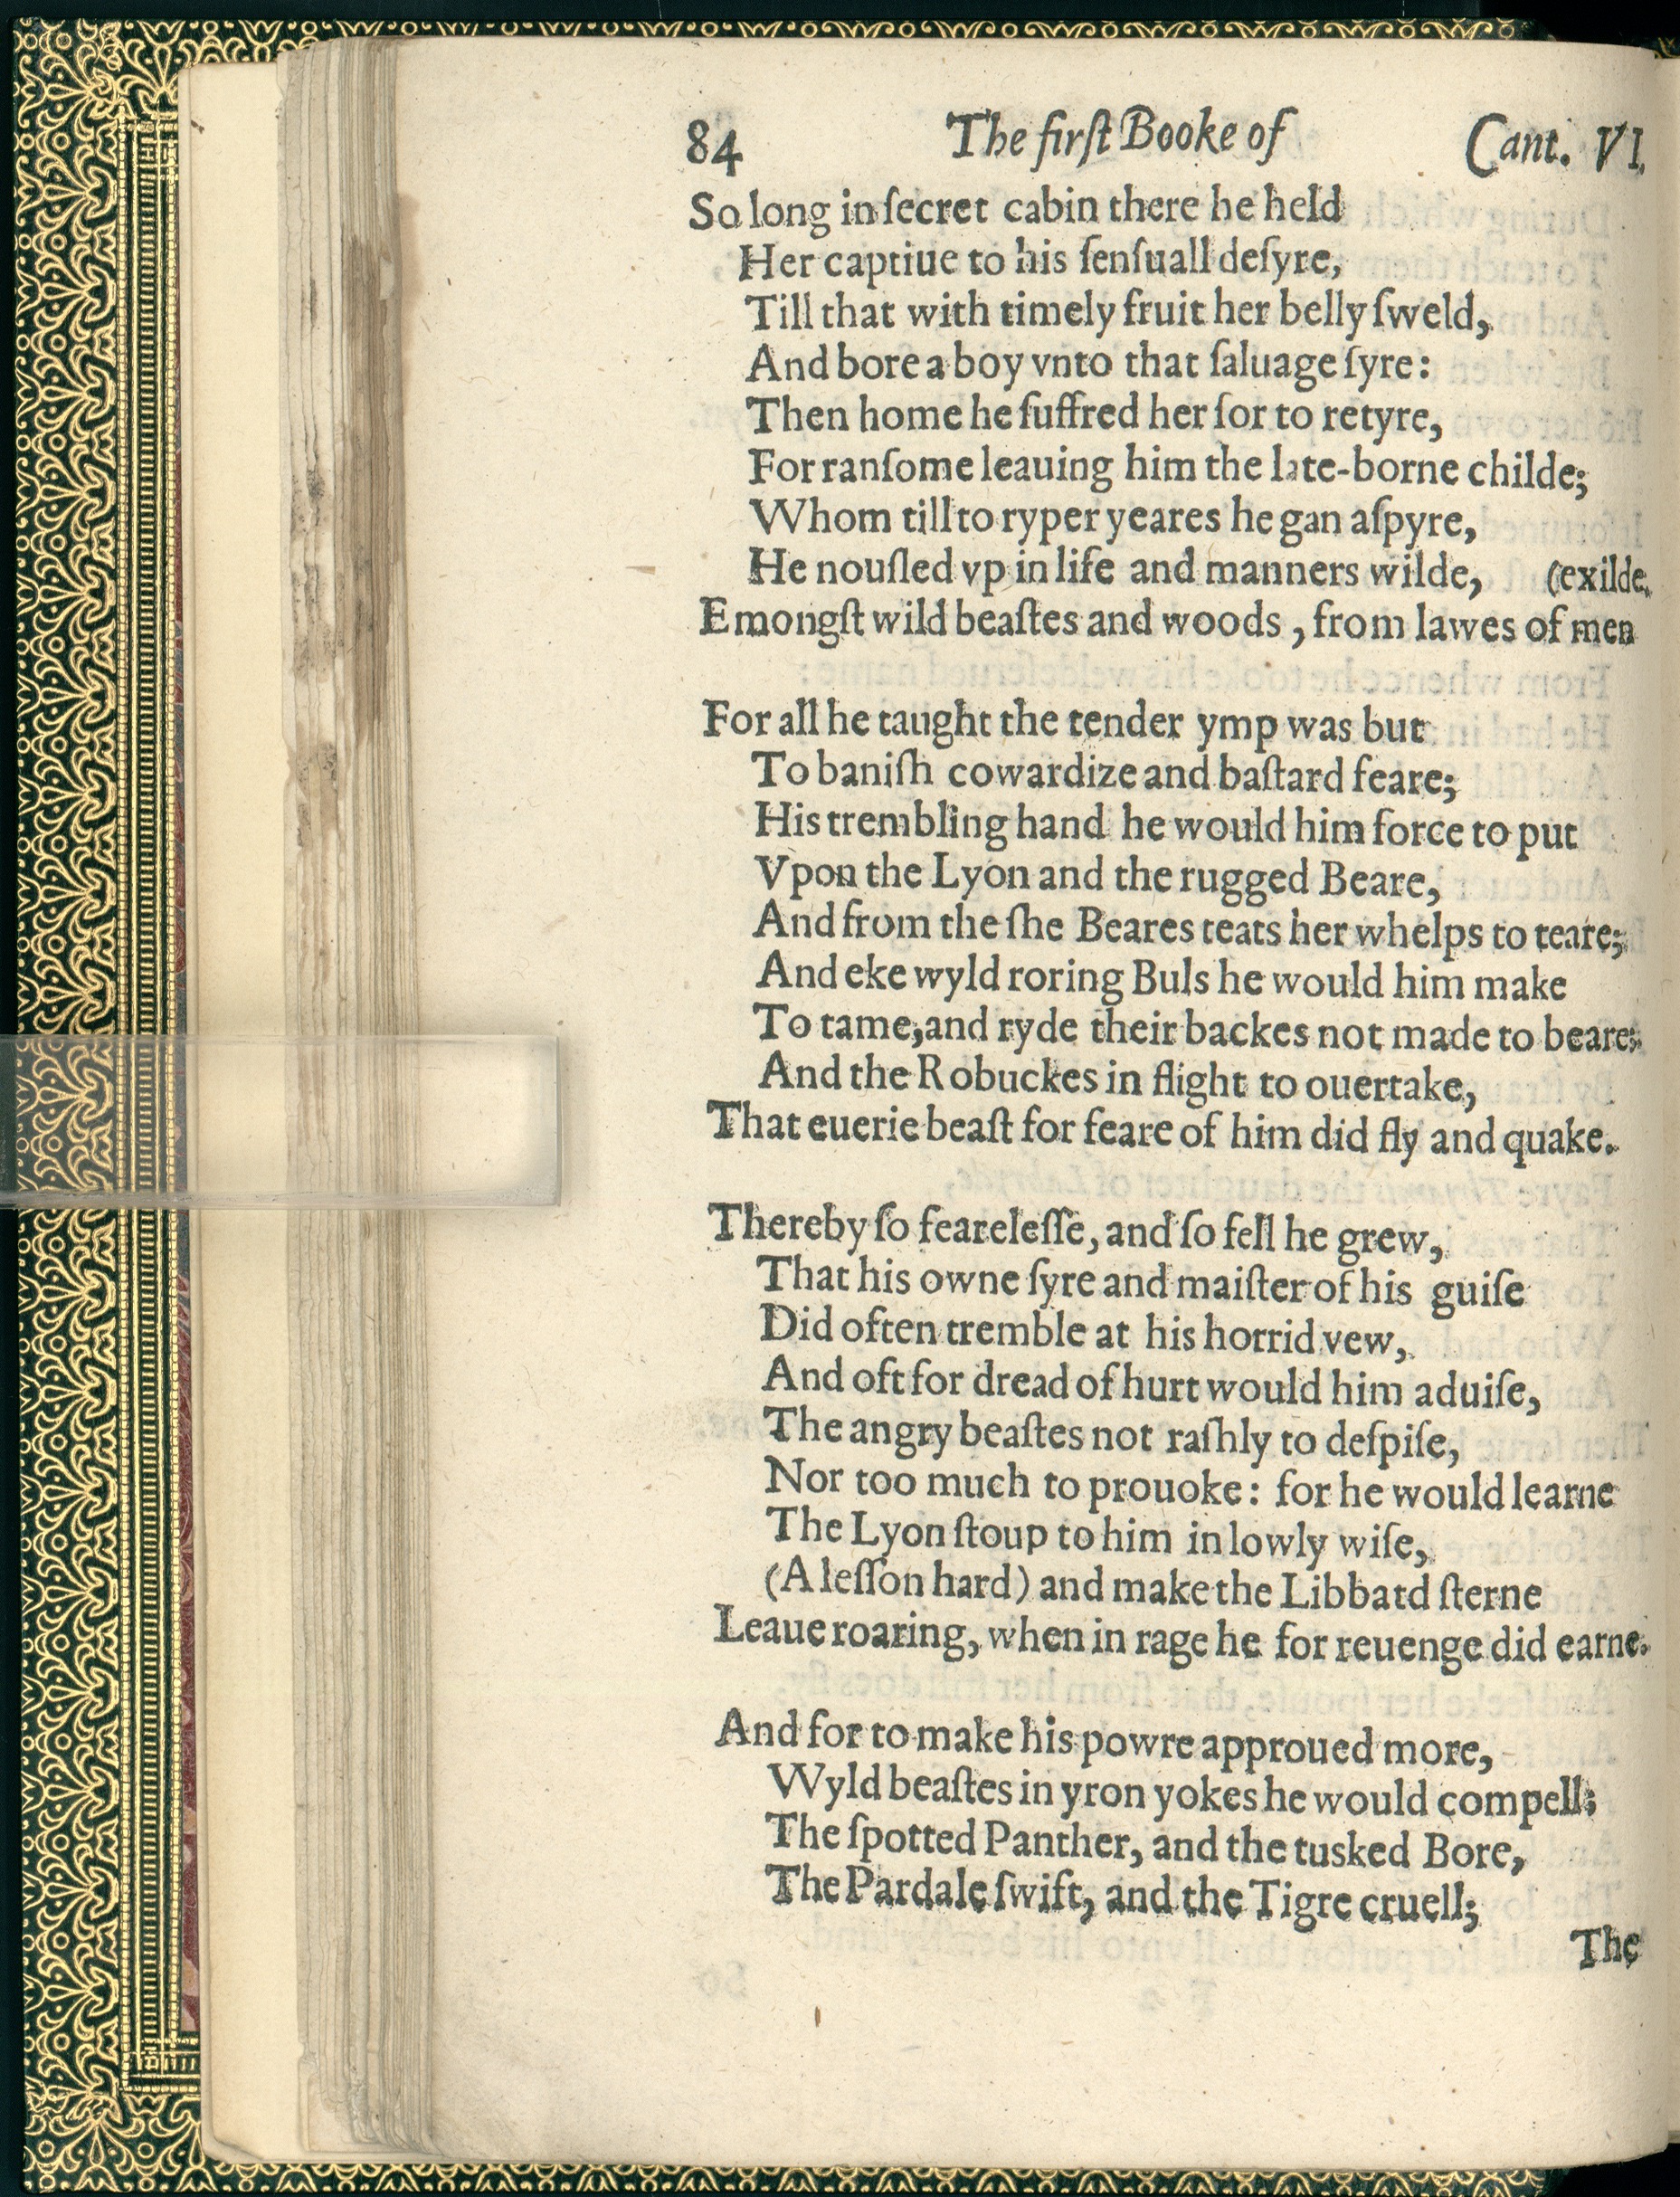 84 The firſt Booke of Cant. VI.
So long in ſecret cabin there he held
Her captiue to his ſenſuall deſyre,
Till that with timely fruit her belly ſweld,
And bore a boy vnto that ſaluage ſyre:
Then home he ſuffred her for to retyre,
For ranſome leauing him the late-borne childe;
Whom till to ryper yeares he gan aſpyre,
He nouſled vp in life and manners wilde, (exilde.
Emongſt wild beaſtes and woods, from lawes of men
For all he taught the tender ymp was but
To baniſh cowardize and baſtard feare;
His trembling hand he would him force to put
Vpon the Lyon and the rugged Beare,
And from the ſhe Beares teats her whelps to teare;
And eke wyld roring Buls he would him make
To tame, and ryde their backes not made to beare;
And the Robuckes in flight to ouertake,
That euerie beaſt for feare of him did fly and quake.
Thereby ſo feareleſſe, and ſo fell he grew,
That his owne ſyre and maiſter of his guiſe
Did often tremble at his horrid vew,
And oft for dread of hurt would him aduiſe,
The angry beaſtes not raſhly to deſpiſe,
Nor too much to prouoke: for he would learne
The Lyon ſtoup to him in lowly wiſe,
(A leſſon hard) and make the Libbard ſterne
Leaue roaring, when in rage he for reuenge did earne.
And for to make his powre approued more,
Wyld beaſtes in yron yokes he would compell;
The ſpotted Panther, and the tusked Bore,
The Pardale ſwift, and the Tigre cruell;
The